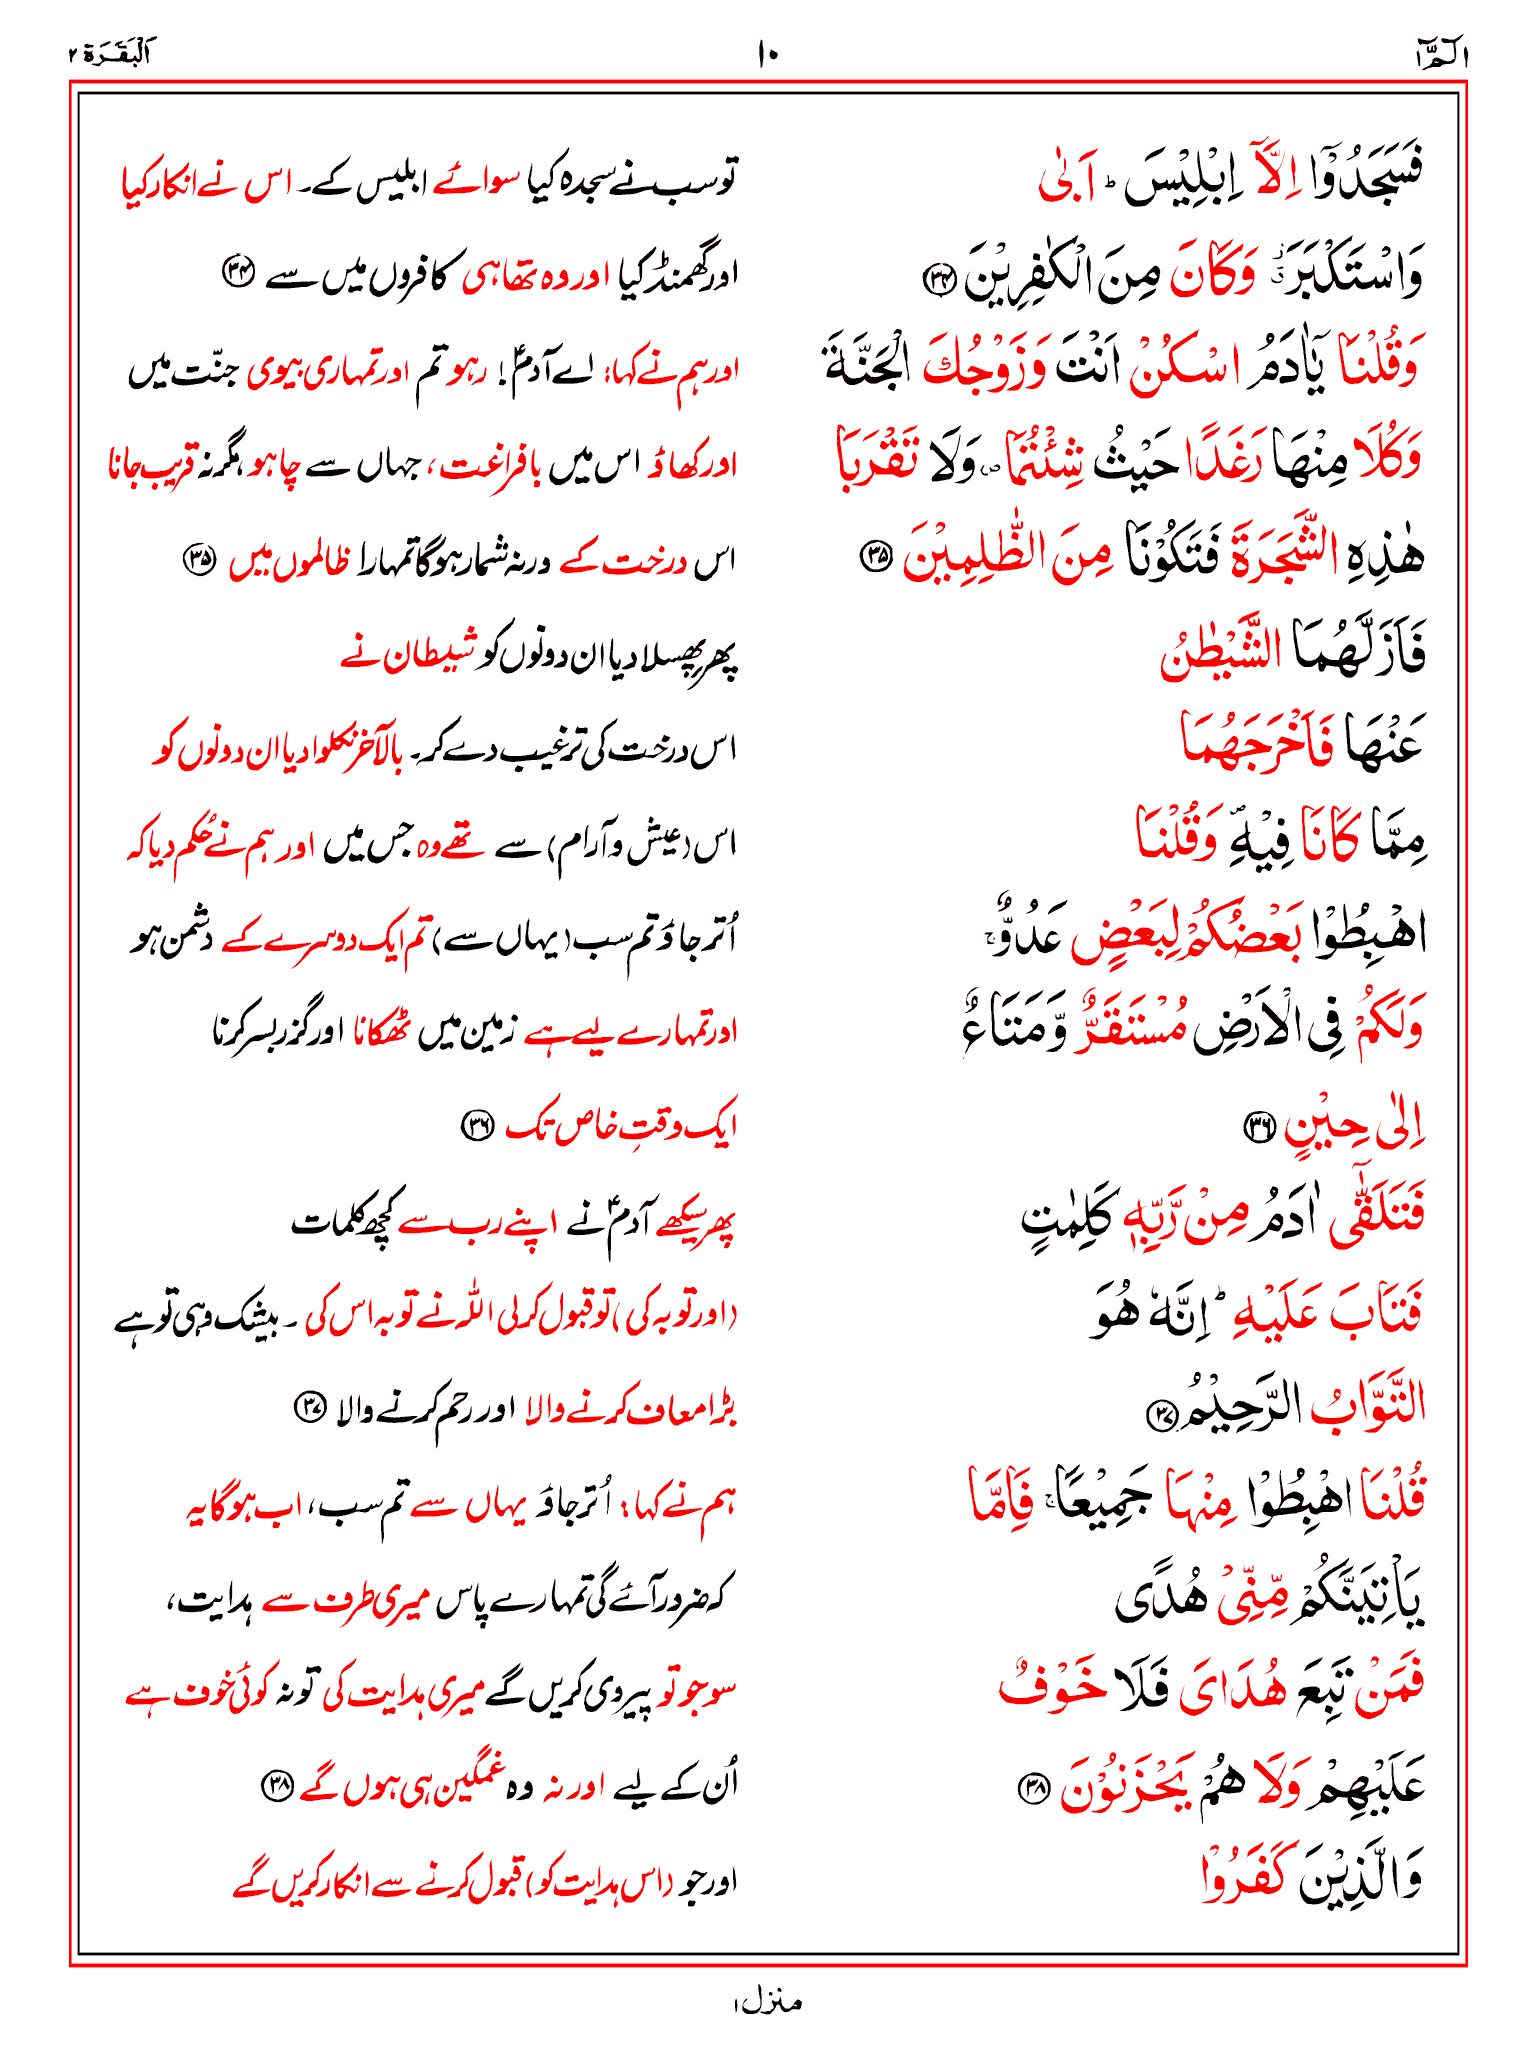 الٓمّٓ ۱ ۱۰ اَلْبَقَرَة ۲
فَسَجَدُوْۤا اِلَّاۤ اِبْلِیْسَ ؕ اَبٰی تو سب نے سجدہ کیا سوائے ابلیس کے۔ اس نے انکار کیا
وَاسْتَكْبَرَ ۗ٘ وَكَانَ مِنَ الْكٰفِرِیْنَ ﴿۳۴﴾ اور گھمنڈ کیا اور وہ تھا ہی کافروں میں سے ﴿۳۴﴾
وَقُلْنَا یٰۤاٰدَمُ اسْكُنْ اَنْتَ وَزَوْجُكَ الْجَنَّةَ اور ہم نے کہا: اے آدمؑ! رہو تم اور تمہاری بیوی جنّت میں
وَكُلَا مِنْهَا رَغَدًا حَیْثُ شِئْتُمَا ۪ وَلَا تَقْرَبَا اور کھاؤ اس میں بافراغت، جہاں سے چاہو، مگر نہ قریب جانا
هٰذِهِ الشَّجَرَةَ فَتَكُوْنَا مِنَ الظّٰلِمِیْنَ ﴿۳۵﴾ اس درخت کے ورنہ شمار ہوگا تمہارا ظالموں میں ﴿۳۵﴾
فَاَزَلَّهُمَا الشَّیْطٰنُ پھر پھسلا دیا ان دونوں کو شیطان نے
عَنْهَا فَاَخْرَجَهُمَا اس درخت کی ترغیب دے کر۔ بالآخر نکلوا دیا ان دونوں کو
مِمَّا كَانَا فِیْهِ ۪ وَقُلْنَا اس (عیش و آرام) سے تھے وہ جس میں اور ہم نے حُکم دیا کہ
اهْبِطُوْا بَعْضُكُمْ لِبَعْضٍ عَدُوٌّ ۚ اُتر جاؤ تم سب (یہاں سے) تم ایک دوسرے کے دشمن ہو
وَلَكُمْ فِی الْاَرْضِ مُسْتَقَرٌّ وَّمَتَاعٌ اور تمہارے لیے ہے زمین میں ٹھکانا اور گزر بسر کرنا
اِلٰی حِیْنٍ ﴿۳۶﴾ ایک وقتِ خاص تک ﴿۳۶﴾
فَتَلَقّٰۤی اٰدَمُ مِنْ رَّبِّهٖ كَلِمٰتٍ پھر سیکھے آدمؑ نے اپنے رب سے کچھ کلمات
فَتَابَ عَلَیْهِ ؕ اِنَّهٗ هُوَ (اور توبہ کی) تو قبول کرلی اللہ نے توبہ اس کی ۔ بیشک وہی تو ہے
التَّوَّابُ الرَّحِیْمُ ﴿۳۷﴾ بڑا معاف کرنے والا اور رحم کرنے والا ﴿۳۷﴾
قُلْنَا اهْبِطُوْا مِنْهَا جَمِیْعًا ۚ فَاِمَّا ہم نے کہا: اُتر جاؤ یہاں سے تم سب، اب ہوگا یہ
یَاْتِیَنَّكُمْ مِّنِّیْ هُدًی کہ ضرور آئے گی تمہارے پاس میری طرف سے ہدایت،
فَمَنْ تَبِعَ هُدَایَ فَلَا خَوْفٌ سو جو تو پیروی کریں گے میری ہدایت کی تو نہ کوئی خوف ہے
عَلَیْهِمْ وَلَا هُمْ یَحْزَنُوْنَ ﴿۳۸﴾ اُن کے لیے اور نہ وہ غمگین ہی ہوں گے ﴿۳۸﴾
وَالَّذِیْنَ كَفَرُوْا اور جو (اس ہدایت کو) قبول کرنے سے انکار کریں گے
منزل ۱